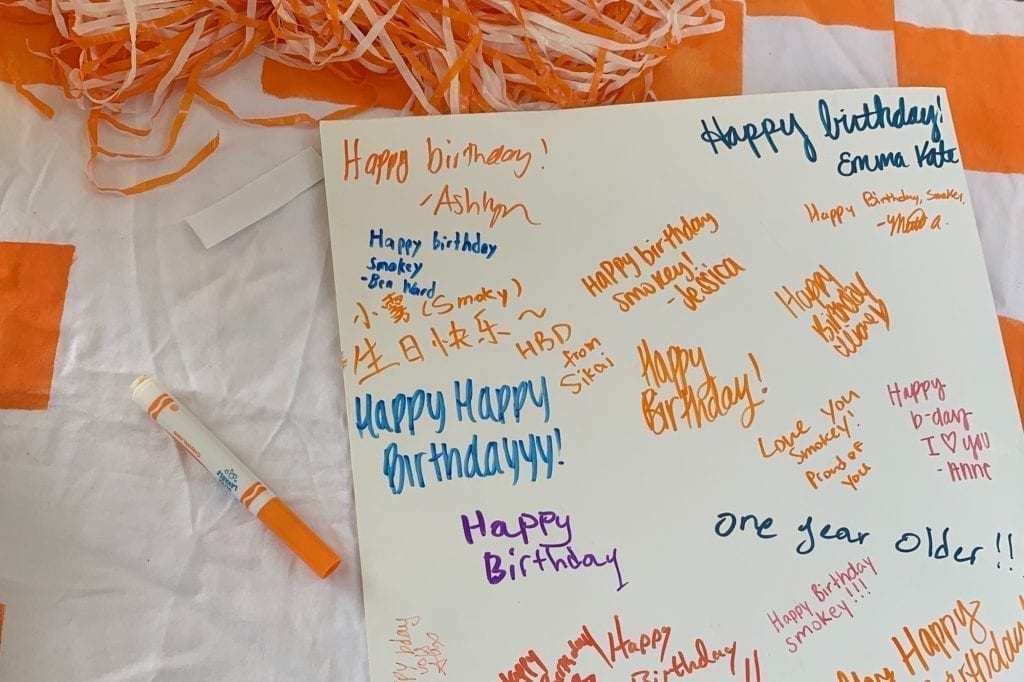 Happy birthday!
-Ashlyn
Happy birthday!
Emma Kate
Happy Birthday, Smokey,
Happy birthday
Smokey
-Ben Ward
Happy birthday
smokey!
-Jessica
Happy
Birthday
小雾 (Smoky)
生日快乐~
HBD
from
Sikai
Happy
Birthday!
Happy Happy
Birthdayyy!
Love You
Smokey!
Proud of
You
Happy
b-day
I ♡ you
-Anne
Happy
Birthday
One year older!!
Happy Birthday
smokey!!!
Happy
Birthday!!
Happy